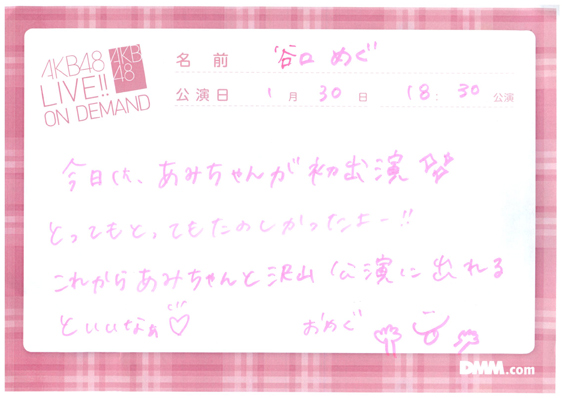 AKB48
LIVE!!
ON DEMAND
AKB
48
名前 谷口 めぐ
公演日 1月30日 18:30公演
今日は、あみちゃんが初出演
とってもとってもたのしかったよー!!
これからあみちゃんと沢山公演に出れる
といいなぁ♡
おめぐ
DMM.com